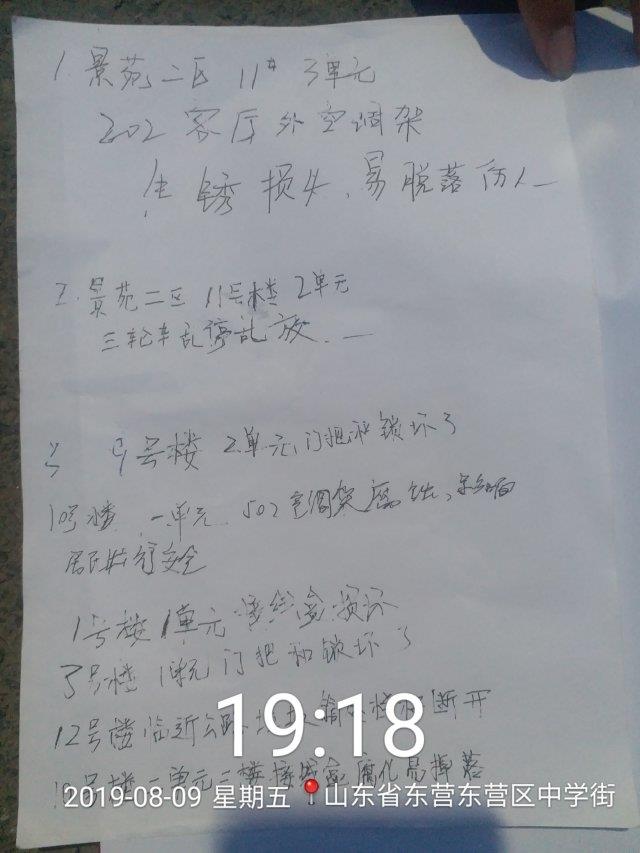 1. 景苑二区 11# 3单元
202客厅外空调架
生锈损失、易脱落伤人
2. 景苑二区 11号楼 2单元
三轮车乱停乱放.
9号楼 2单元门把和锁坏了
10号楼 一单元 502空调架腐蚀,影响
居民 安全
1号楼1单元 损坏
3号楼 1单元门把和锁坏了
12号楼临近公路 断开
号楼二单元三楼 腐化易掉落
19:18
2019-08-09 星期五 山东省东营东营区中学街